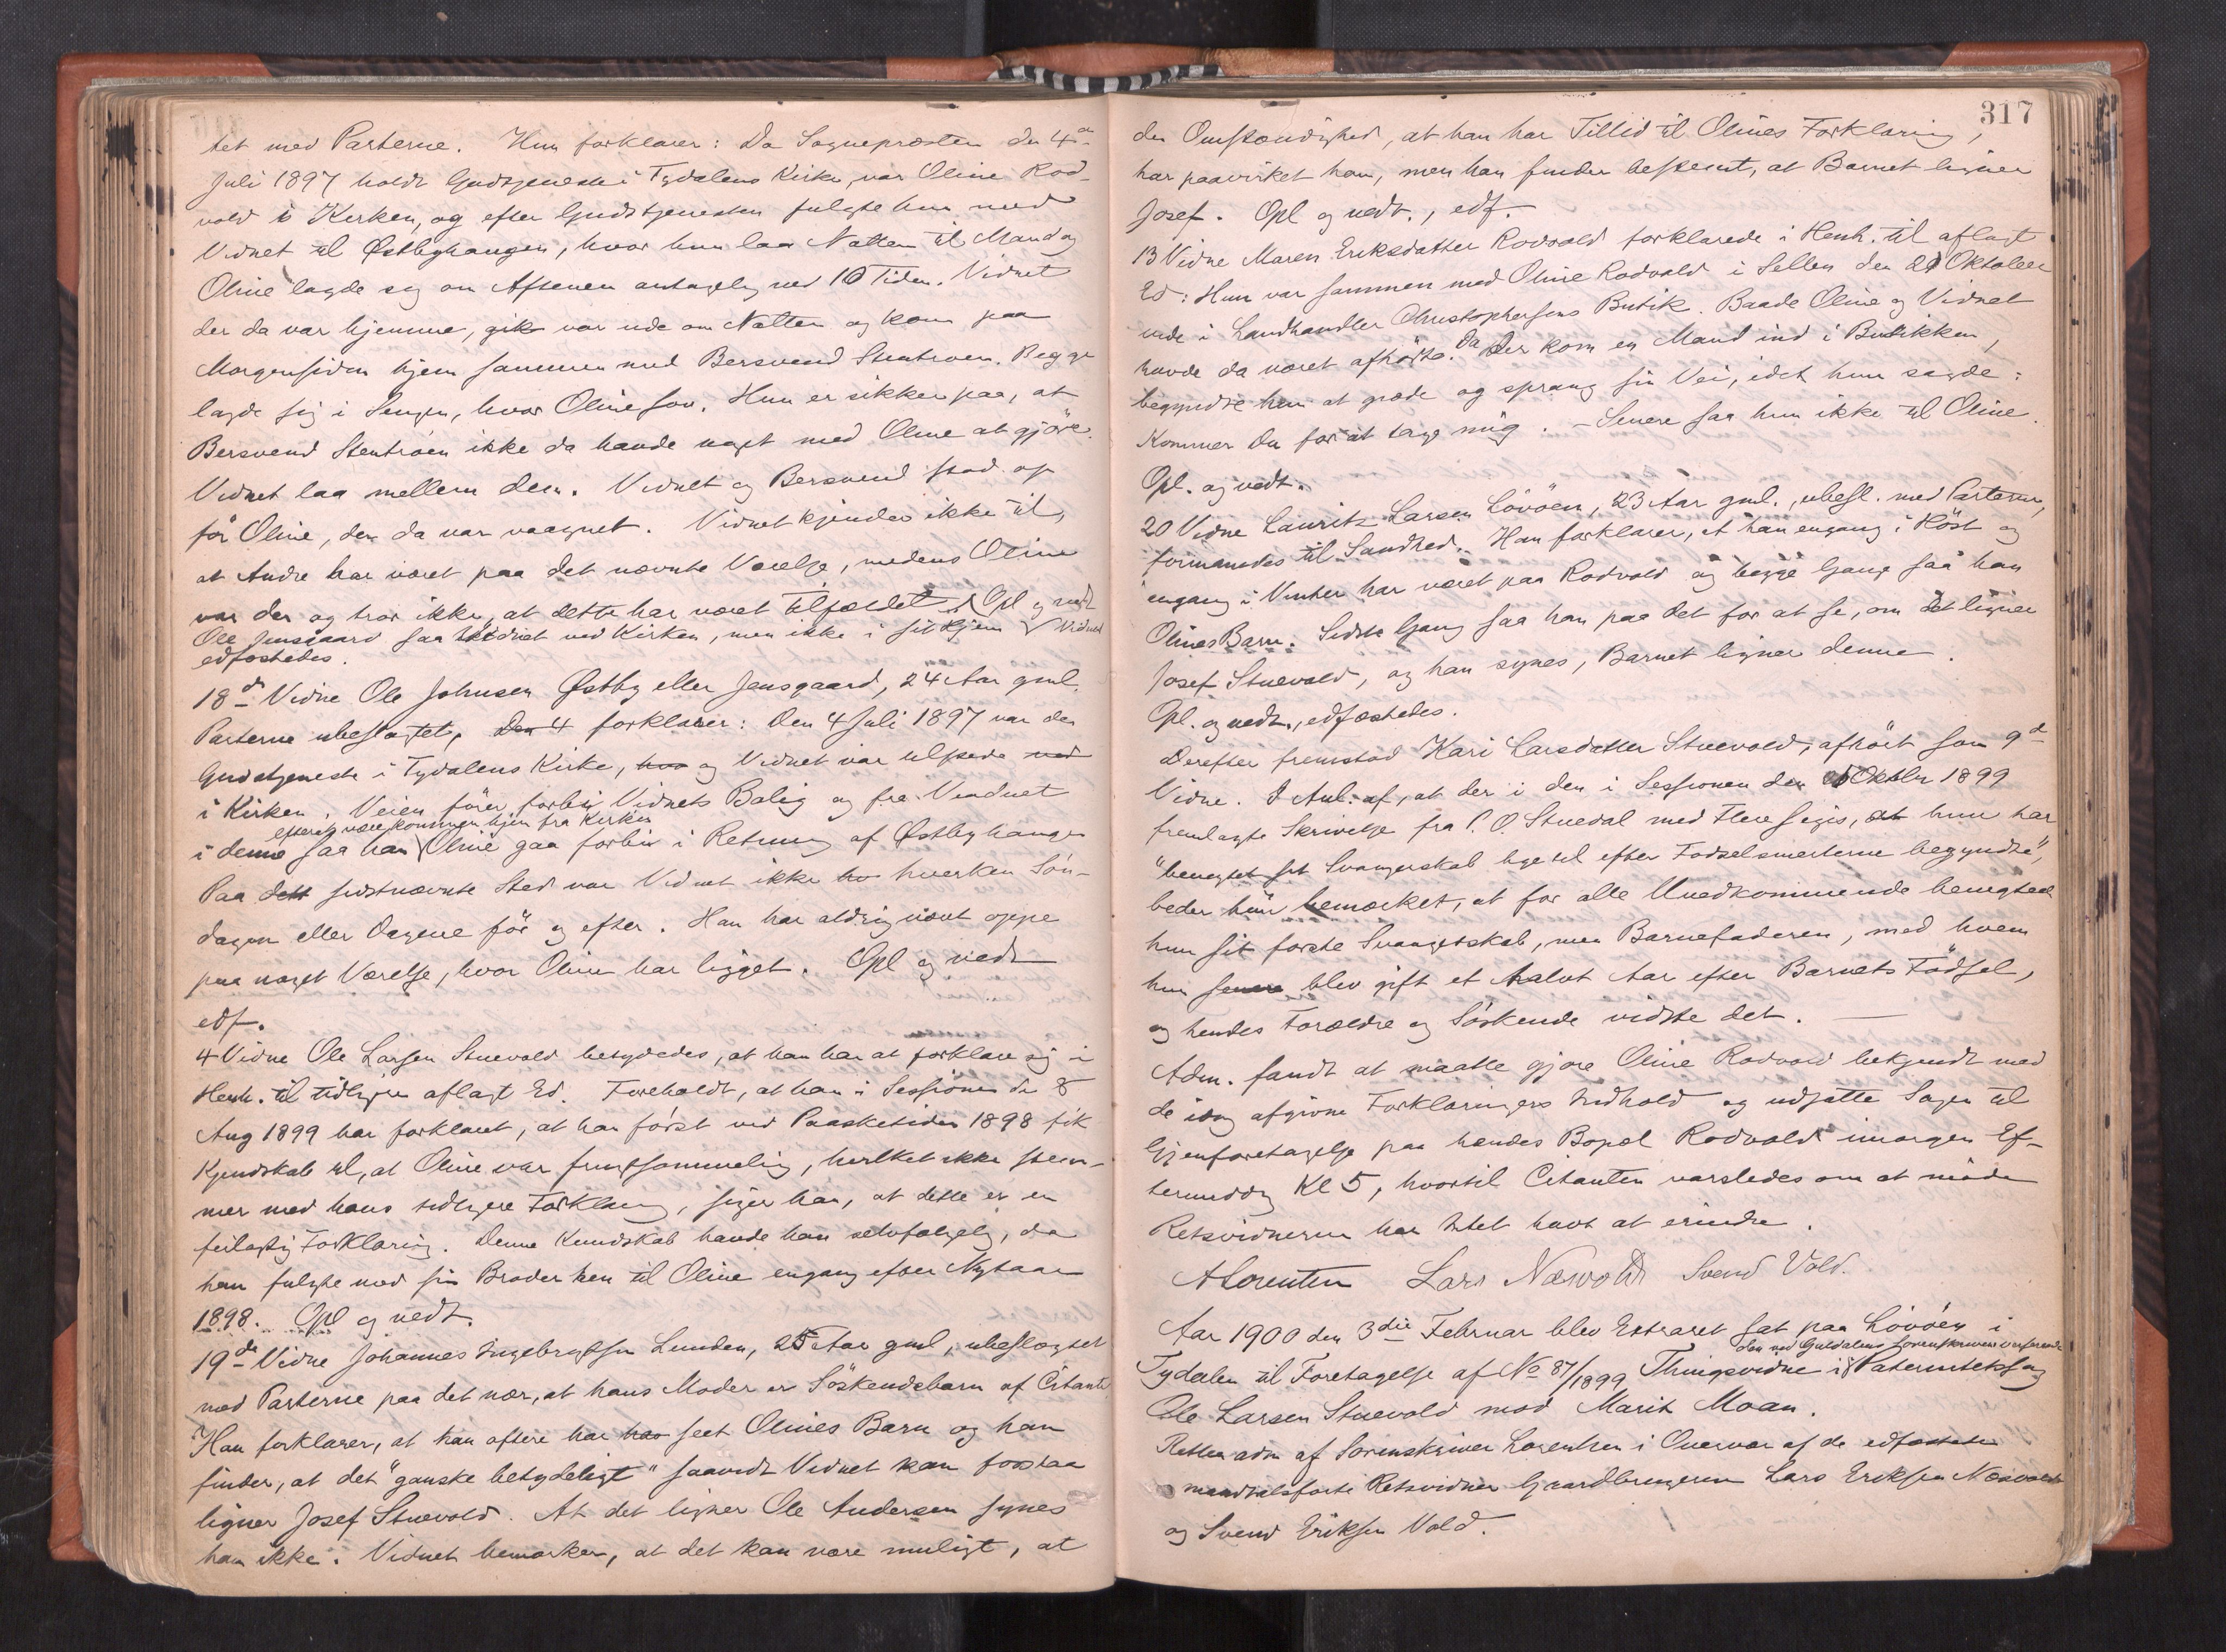 tet med Parterne. Hun forklarer: Da Sognepræsten den 4de
Juli 1897 holdt Gudstjeneste i Tydalens Kirke, var Oline Rod-
vold i Kirken, og efter Gudstjenesten fulgte hun med
Vidnet til Østbyhaugen, hvor hun laa Natten til Mandag
Oline lagde sig om Aftenen antagelig ved 10 Tiden. Vidnet
der da var hjemme, gik var ude om Natten og kom paa
Morgensiden hjem sammen med Bersvend Stentrøen. Begge
lagde sig i Sengen, hvor Oline sov. Hun er sikker paa, at
Bersvend Stentrøen ikke da havde noget med Oline at gjöre.
Vidnet laa mellem dem. Vidnet og Bersvend stod op
för Oline, der da var vaagnet. Vidnet kjender ikke til,
at Andre har været paa det nævnte Værelse, medens Oline
var der og tror ikke, at dette har været Tilfældet. Opl og vedt
Ole Jensgaard saa Vidnet ved Kirken, men ikke i sit Hjem Vidnet
edfæstedes.
18de Vidne Ole Johnsen Østby eller Jensgaard, 24 Aar gml.
Parterne ubeslægtet, Den 4 forklarer: Den 4 Juli 1897 var der
Gudstjeneste i Tydalens Kirke, hvo og Vidnet var tilstede ved
i Kirken. Veien förer forbi Vidnets Bolig og fra Vinduet
efter at være kommen hjem fra Kirken
i denne saa han Oline gaa forbi i Retning af Østbyhaugen
Paa dett sidstnævnte Sted var Vidnet ikke hv hverken Sön-
dagen eller Dagene för og efter. Han har aldrig været oppe
paa noget Værelse, hvor Oline har ligget. Opl og vedt
edf.
4 Vidne Ole Larsen Stuevold betydedes, at han har at forklare sig i
Henh. til tidligere aflagt Ed. Foreholdt, at han i Sessionen de 8
Aug 1899 har forklaret, at han först ved Paasketiden 1898 fik
Kjendskab til, at Oline var frugtsommelig, hvilket ikke stem-
mer med hans tidligere Forklaring, siger han, at dette er en
feilagtig Forklaring. Denne Kundskab havde han selvfølgelig, da
han fulgte med sin Broder hen til Oline engang efter Nytaar
1898. Opl og vedt.
19de Vidne Johannes Ingebrigtsen Lunden, 25 Aar gml, ubeslægtet
med Parterne paa det nær, at hans Moder er Söskendebarn af Citanten
Han forklarer, at han oftere har hav seet Olines Barn og han
finder, at det "ganske betydeligt" saavidt Vidnet kan forstaa
ligner Josef Stuevold. At det ligner Ole Andersen synes
han ikke. Vidnet bemærker, at det kan være muligt, at
317
den Omstændighed, at han har Tillid til Olines Forklaring,
har paavirket ham, men han finder bestemt, at Barnet ligner
Josef. Opl og vedt., edf.
13 Vidne Maren Eriksdatter Rodvold forklarede i Henh. til aflagt
Ed: Hun var sammen med Oline Rodvold i Selbu den 21 Oktober
inde i Landhandler Christophersens Butik. Baade Oline og Vidnet
havde da været afhörte. Da Der kom en Mand ind i Butikken,
begyndte hun at græde og sprang sin Vei, idet hun sagde:
Kommer du for at tage mig. - Senere saa hun ikke til Oline.
Opl. og vedt.
20 Vidne Lauritz Larsen Lövöen, 23 Aar gml., ubesl. med Parterne,
formanedes til Sandhed. Han forklarer, at han engang i Höst og
engang i Vinter har været paa Rodvold og begge Gange saa han
Olines Barn. Sidste Gang saa han paa det for at se, om det ligner
Josef Stuevold, og han synes, Barnet ligner denne.
Opl. og vedt., edfæstedes.
Derefter fremstod Kari Larsdatter Stuevold, afhört som 9de
Vidne. I Anl. af, at der i den i Sessionen den Oktbr 1899
fremlagte Skrivelse fra P. O. Stuedal med Flere siges, at hun har
"benegtet sit Svangerskab lige til efter Fødselsmerterne begyndte",
beder hun bemærket, at for alle Uvedkommende benegtede
hun sit første Svangerskab, men Barnefaderen, med hvem
hun senere blev gift et halvt Aar efter Barnets Fødsel,
og hendes Forældre og Söskende vidste det. —
Adm. fandt at maatte gjøre Oline Rodvold bekjendt med
de idag afgivne Forklaringers Indhold og udsatte Sagen til
Gjenforetagelse paa hendes Bopæl Rodvold imorgen Ef-
termiddag Kl 5, hvortil Citanten varsledes om at møde
Retsvidnerne har Intet havt at erindre.
A Lorentzen Lars Næsvold Svend Vold.
Aar 1900 den 3die Februar blev Extraret sat paa Lövöen i
den ved Guldalens Sorenskriveri verserende
Tydalen til Foretagelse af No 87/1899 Thingsvidne i Paternitetssag
Ole Larsen Stuevold mod Marit Moan.
Retten adm af Sorenskriver Lorentzen i Overvær af de edfæstede
mandtalsførte Retsvidner Gaardbrugerne Lars Eriksen Næsvold
og Svend Eriksen Vold.